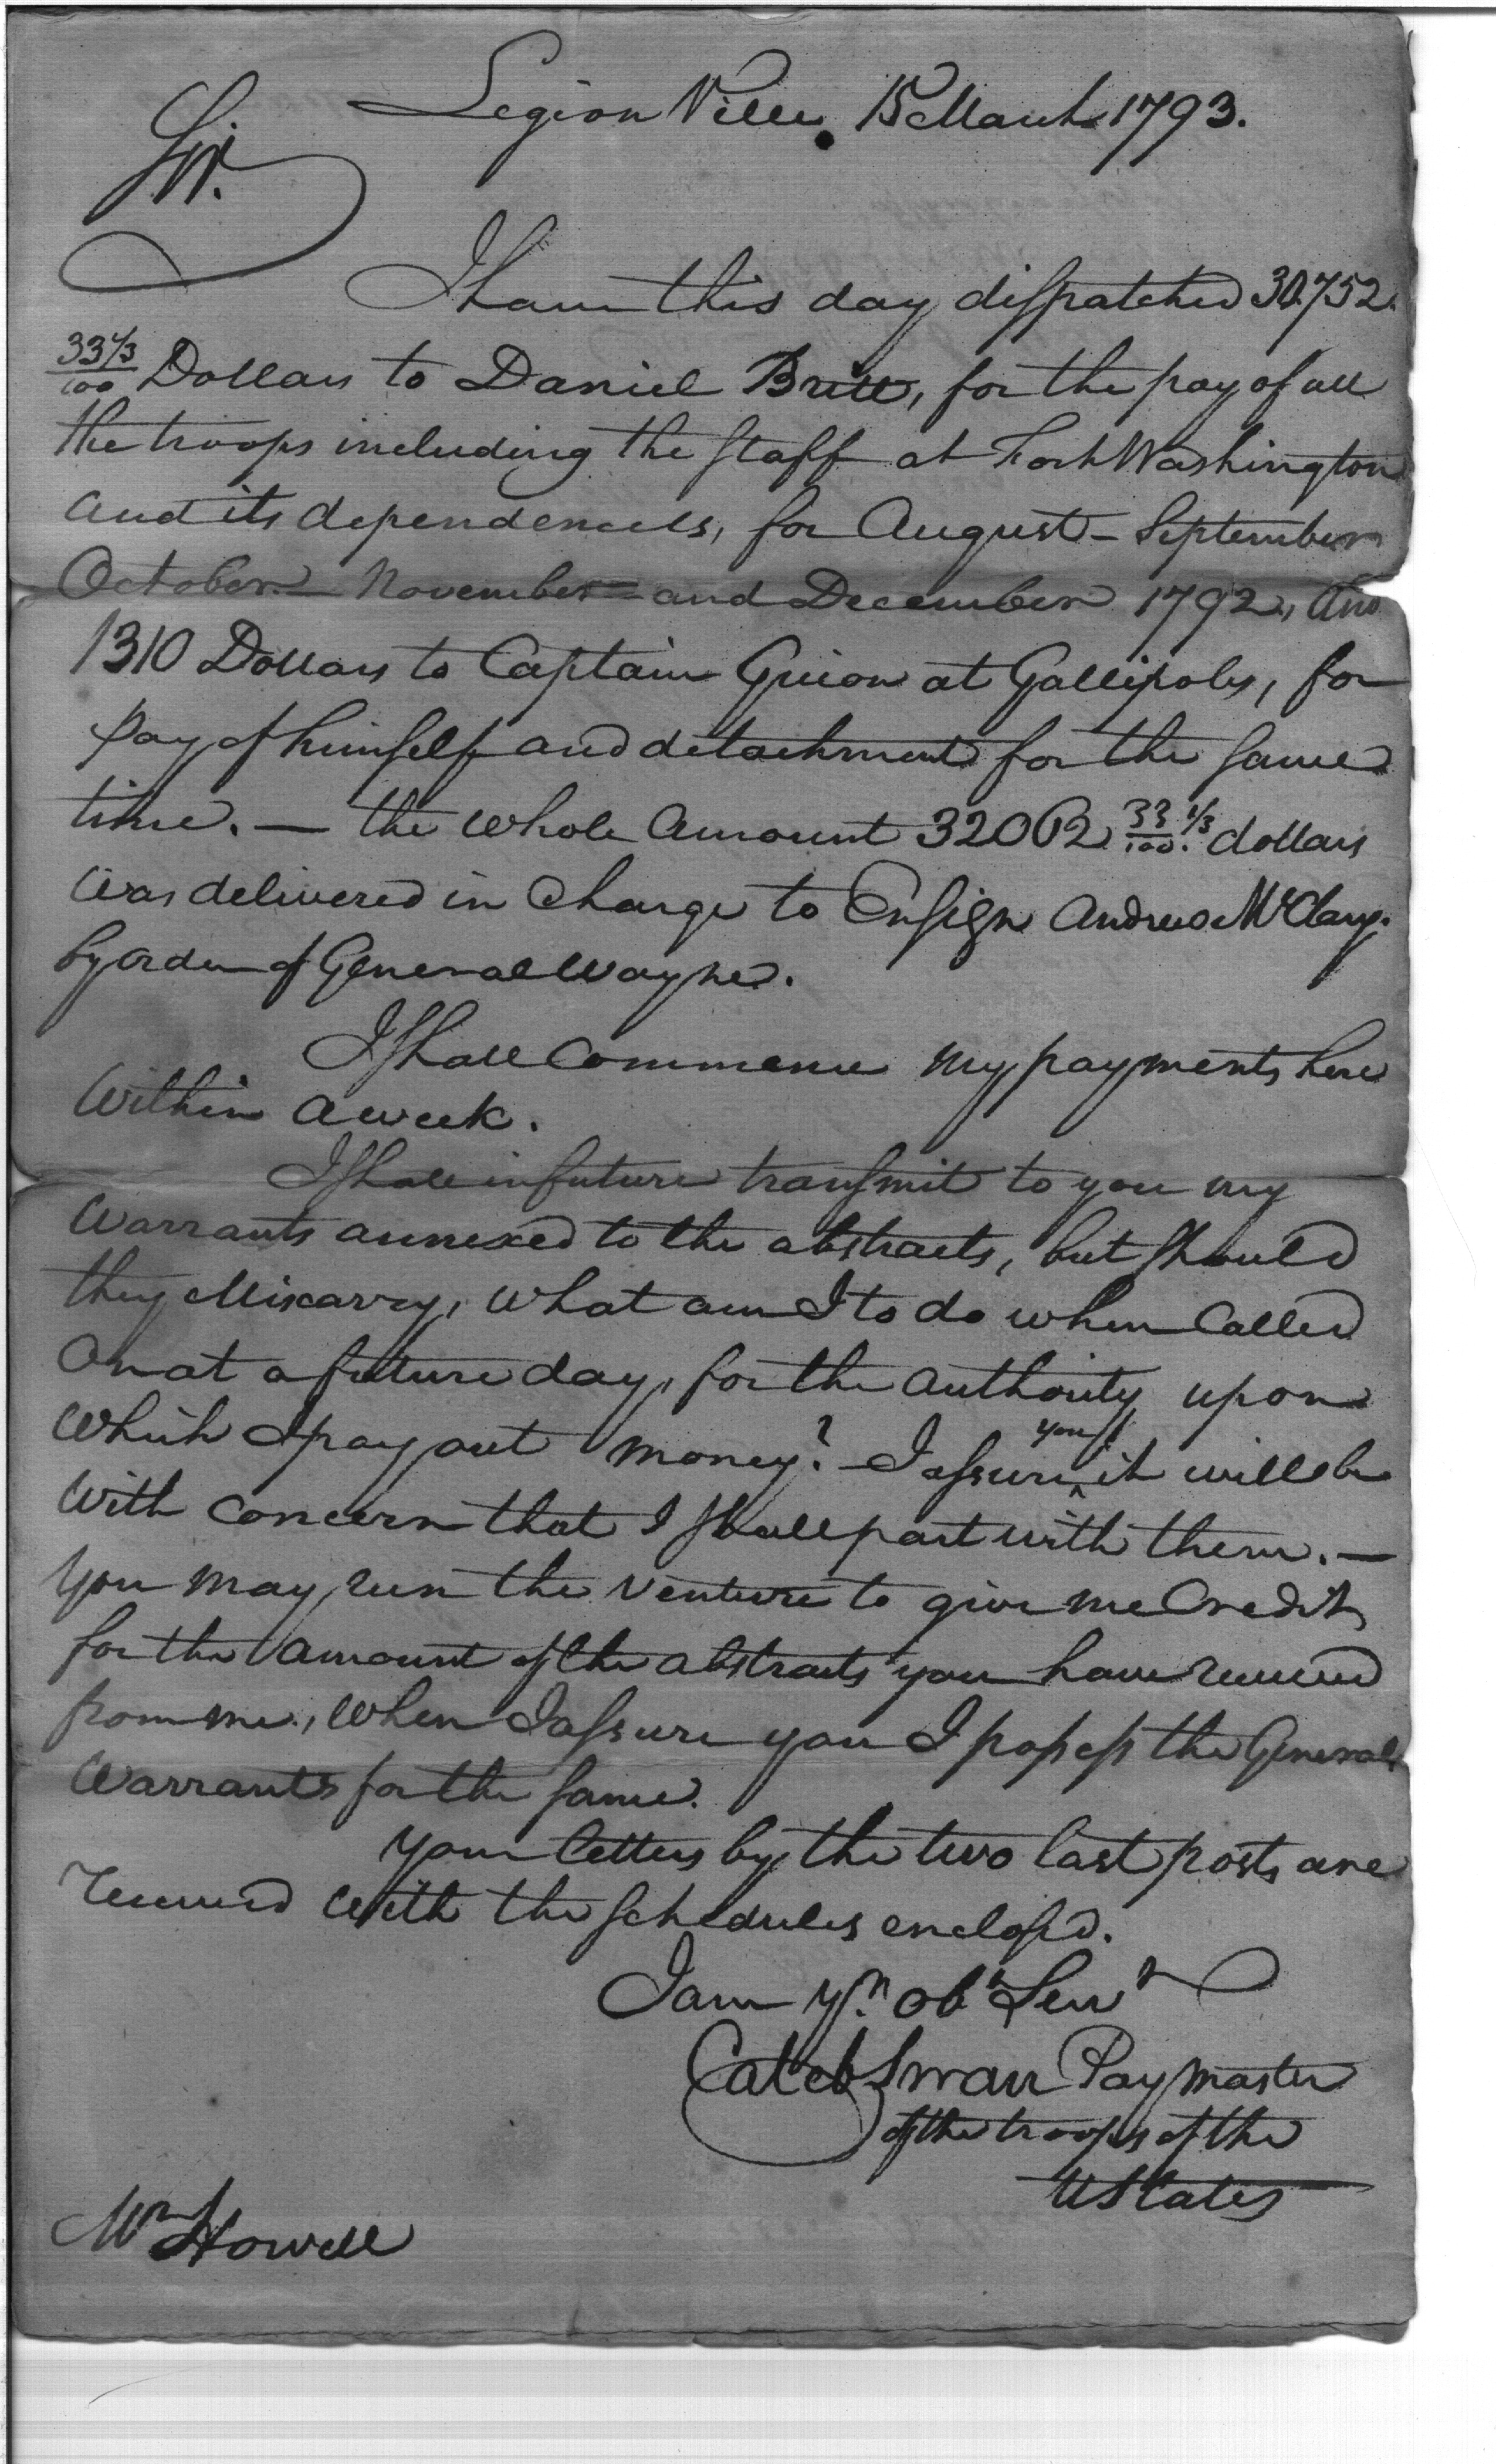 Legion Ville. 15 March 1793.
Sir.
I have this day dispatched 30.752.
33 1/3/100 Dollars to Daniel Britt, for the pay of all
the troops including the staff at Fort Washington
and its dependencies, for August - September
October - November - and December 1792, and
1310 Dollars to Captain Guion at Gallipolis, for
pay of himself and detachment for the same
time. — the whole amount 32062 33/100 1/3 dollars
was delivered in charge to Ensign Andrew McClary.
by order of General Wayne.
I shall commence my payments here
within a week.
I shall in future transmit to you my
warrants annexed to the abstracts, but should
they Miscarry, what am I to do when called
on at a future day, for the authority upon
which I pay out money? - I assure you it will be
with concern that I shall part with them. —
You may run the venture to give me Credit
for the amount of the abstracts you have received
from me, when I assure you I possess the Generals
warrants for the same.
Your letters by the two last posts are
received with the schedules enclosed.
I am Yr. obt Servt
Caleb Swan Paymaster
of the troops of the
UStates
Mr Howell